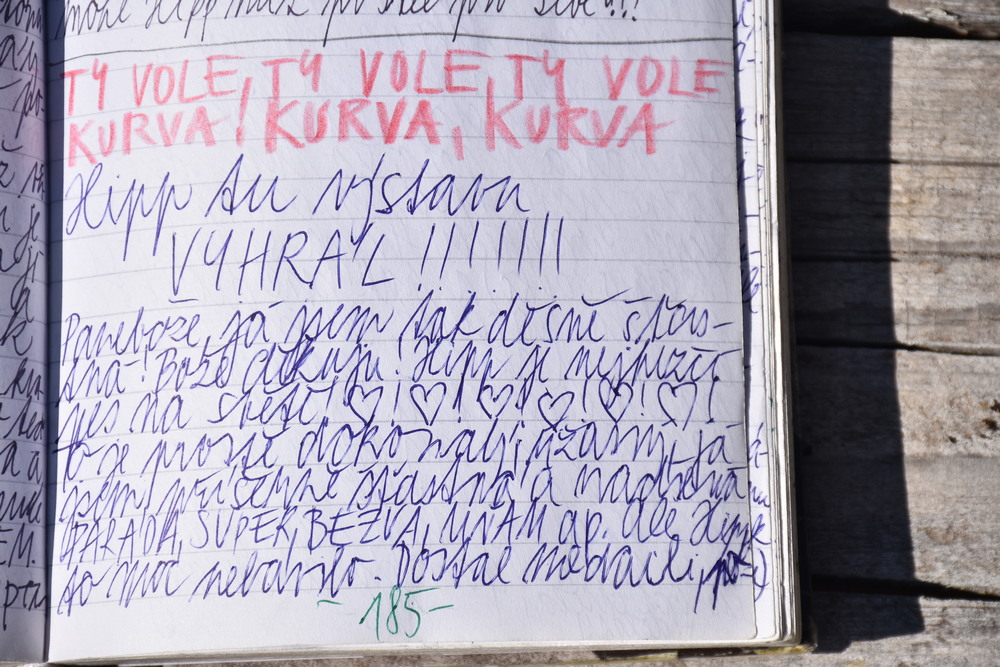 může Hipp
TY VOLE, TY VOLE, TY VOLE
KURVA! KURVA, KURVA
Hipp tu výstavu
VYHRÁL !!!!!!!
Panebože, já jsem tak děsně šťas-
tná! Bože děkuju! Hipp je nejhezčí
pes na světě! ♡! ♡! ♡! ♡! ♡! ♡!
to je prostě dokonalý, úžasný, já
jsem příšerně šťastná a nadšená
PARÁDA, SUPER, BEZVA, MŇAM ap. Ale Hippa
to moc nebavilo. Dostal medaili,
-185-